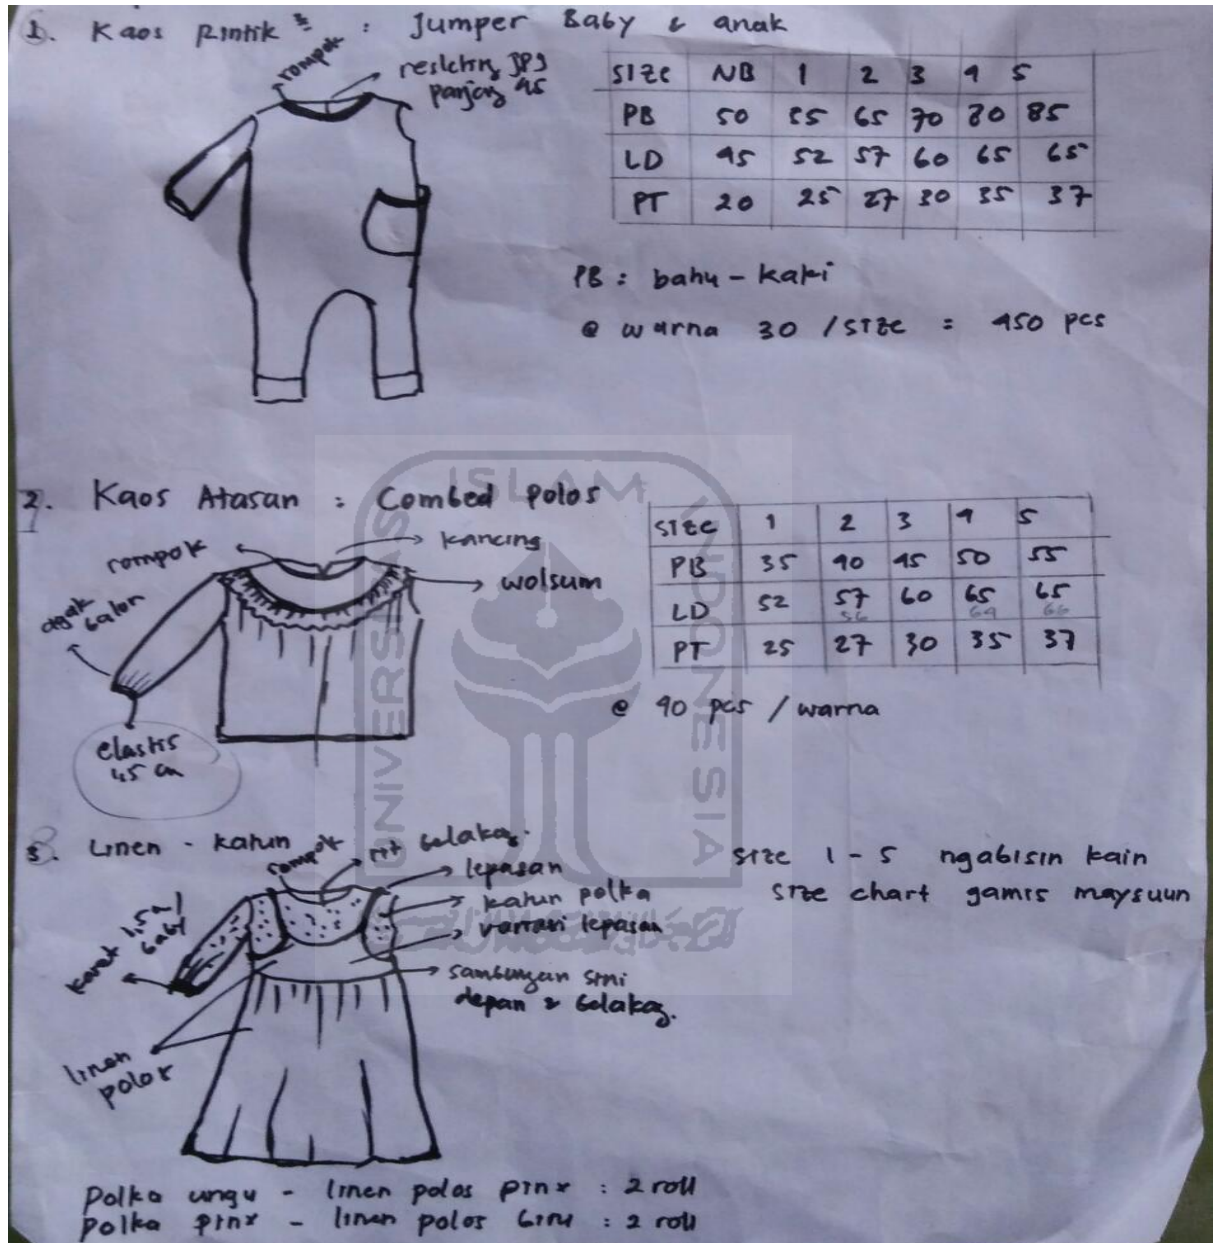 1. Kaos Rintik² : Jumper Baby & anak
rompok
resleting JPJ
panjang 45
SIZE NB 1 2 3 4 5
PB 50 55 65 70 80 85
LD 45 52 57 60 65 65
PT 20 25 27 30 35 37
PB : bahu - kaki
@ warna 30 / SIZE = 450 pcs
2. Kaos Atasan : Combed Polos
rompok
kancing
wolsum
agak
balon
elastis
1,5 cm
SIZE 1 2 3 4 5
PB 35 40 45 50 55
LD 52 57 60 65 65
56 64 66
PT 25 27 30 35 37
@ 40 pcs / warna
3. Linen - katun
rompok
rit belakang.
lepasan
katun polka
variasi lepasan
karet 1,5 cm
baby
sambungan sini
depan & belakang.
linen
polos
size 1 - 5 ngabisin kain
size chart gamis maysuun
Polka ungu - linen polos pink : 2 roll
Polka pink - linen polos biru : 2 roll
UNIVERSITAS ISLAM INDONESIA